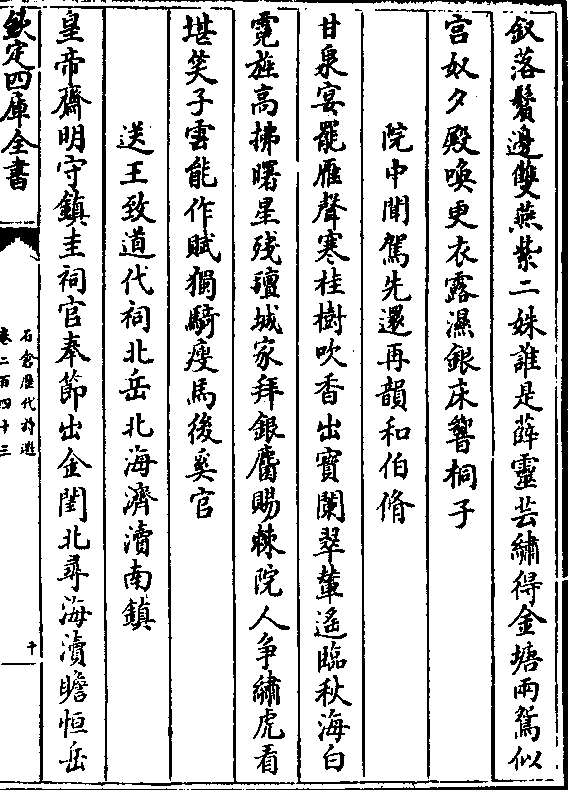 釵落鬢邊雙燕紫二姝誰是薛靈芸繡得金塘兩鴛似
宫奴夕殿喚更衣露濕銀床響桐子
院中聞駕先還再韻和伯脩
甘泉宴罷雁聲寒桂樹吹香出寳闌翠輦遙臨秋海白
霓旌高拂曙星殘氊城家拜銀麞賜棘院人争繡虎看
堪笑子雲能作賦獨騎瘦馬後奚官
送王致道代祠北岳北海濟瀆南鎮
皇帝齋明守鎮圭祠官奉節出金閨北尋海瀆瞻恒岳
欽定四庫全書
石倉歷代詩選
卷二百四十三
十